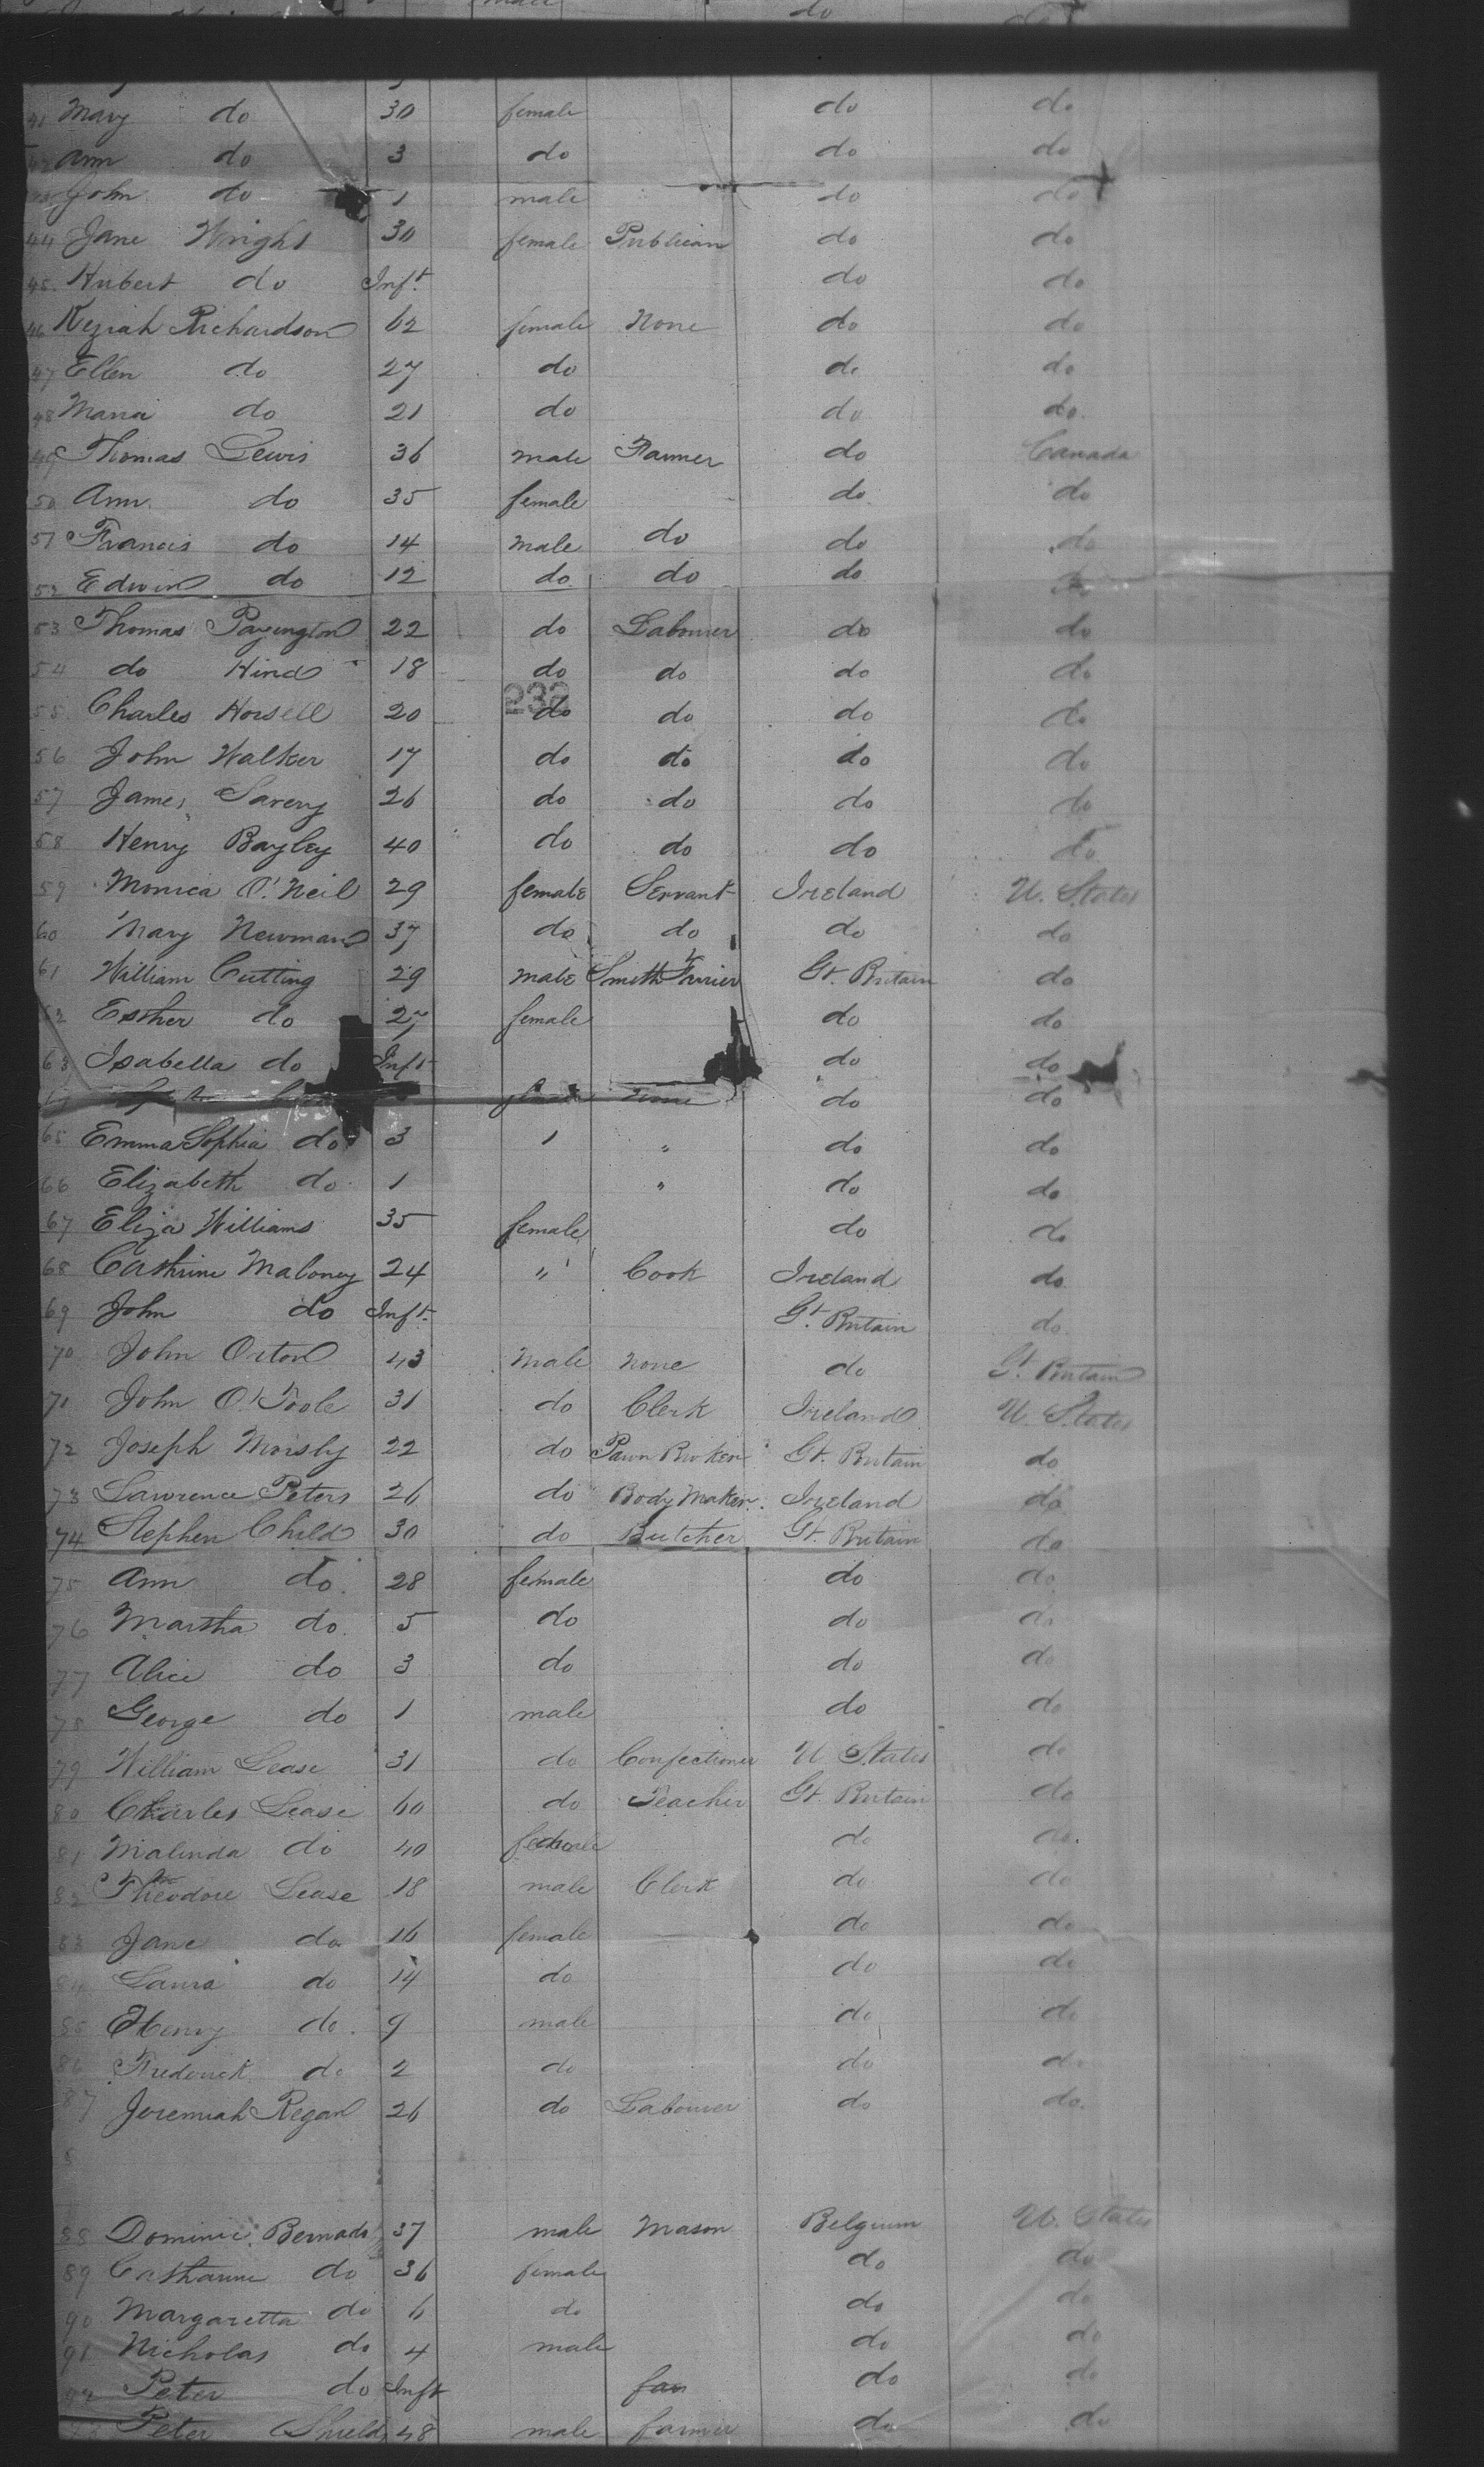 male do
41 Mary do 30 female do do
42 Ann do 3 do do do
43 John do 1 male do do
44 Jane Wright 30 female Publican do do
45 Hubert do Inft. do do
46 Keziah Richardson 62 female None do do
47 Ellen do 27 do do do
48 Maria do 21 do do do
49 Thomas Lewis 36 male Farmer do Canada
50 Ann do 35 female do do
51 Francis do 14 male do do do
52 Edwin do 12 do do do do
53 Thomas 22 do Labourer do do
54 do Hind 18 do do do do
232
55 Charles Horsell 20 do do do do
56 John Walker 17 do do do do
57 James Savery 26 do do do do
58 Henry Bayley 40 do do do do
59 Monica O'Neil 29 female Servant Ireland U. States
60 Mary Newman 37 do do do do
61 William Cutting 29 male Smith Gt. Britain do
62 Esther do 27 female do do
63 Isabella do Inft do do
None do do
65 Emma Sophia do 3 " do do
66 Elizabeth do 1 " do do
67 Eliza Williams 35 female do do
68 Cathrine Maloney 24 " Cook Ireland do
69 John do Inft. Gt. Britain do
70 John Orton 43 male none do Gt. Britain
71 John O'Toole 31 do Clerk Ireland U. States
72 Joseph 22 do Pawn Broker Gt. Britain do
73 Lawrence Peters 26 do Body Maker. Ireland do
74 Stephen Child 30 do Butcher Gt. Britain do
75 Ann do. 28 female do do
76 Martha do. 5 do do do
77 Alice do 3 do do do
78 George do 1 male do do
79 William Lease 31 do Confectioner U. States do
80 Charles Lease 60 do Teacher Gt. Britain do
81 Malinda do 40 female do do.
82 Theodore Lease 18 male Clerk do do
83 Jane do 16 female do do
84 Laura do 14 do do do
85 Henry do. 9 male do do
86 Frederick do 2 do do do
87 Jeremiah Regan 26 do Labourer do do.
88 Dominic 37 male Mason Belgium U. States
89 Catharine do 36 female do do
90 Margaretta do 6 do do do
91 Nicholas do 4 male do do
92 Peter do Inft far do do
Peter Shield 48 male farmer do do